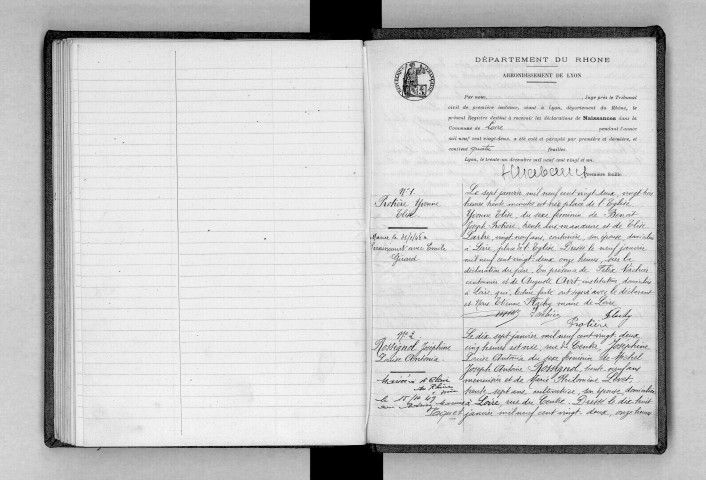 DÉPARTEMENT DU RHONE
ARRONDISSEMENT DE LYON
Par nous, Juge près le Tribunal
civil de première instance, séant à Lyon, département du Rhône, le
présent Registre destiné à recevoir les déclarations de Naissances dans la
Commune de Loire pendant l'année
mil neuf cent vingt-deux, a été coté et paraphé par première et dernière, et
contient quatre feuilles.
Lyon, le trente-un décembre mil neuf cent vingt et un.
première feuille
N° 1
Protière Yvonne
Elise
Mariée le
avec
Gérard
Le sept janvier mil neuf cent vingt deux, vingt trois
heures trente minutes est née place de l'Eglise
Yvonne Elise, du sexe féminin de Benoit
Joseph Protière, trente ans manœuvre et de Elise
vingt neuf ans, couturière, son épouse domiciliés
à Loire, place de l'Eglise. Dressé le neuf janvier
mil neuf cent vingt-deux onze heures, sur la
déclaration du père, en présence de Félix
et de Auguste instituteur, domiciliés
à Loire, qui, lecture faite ont signé avec le déclarant
et Nous Etienne maire de Loire
Protière
N° 2
Rossignol Joséphine
Louise Antonia
le 15/10/49
Le dix sept janvier mil neuf cent vingt deux
cinq heures est née, rue du Centre, Joséphine
Louise Antonia du sexe féminin de Michel
Joseph Antoine Rossignol, trente neuf ans
menuisier et de Marie Philomène
trente sept ans, cultivatrice, son épouse domiciliés
à Loire, rue du Centre. Dressé le dix huit
janvier mil neuf cent vingt-deux, onze heures